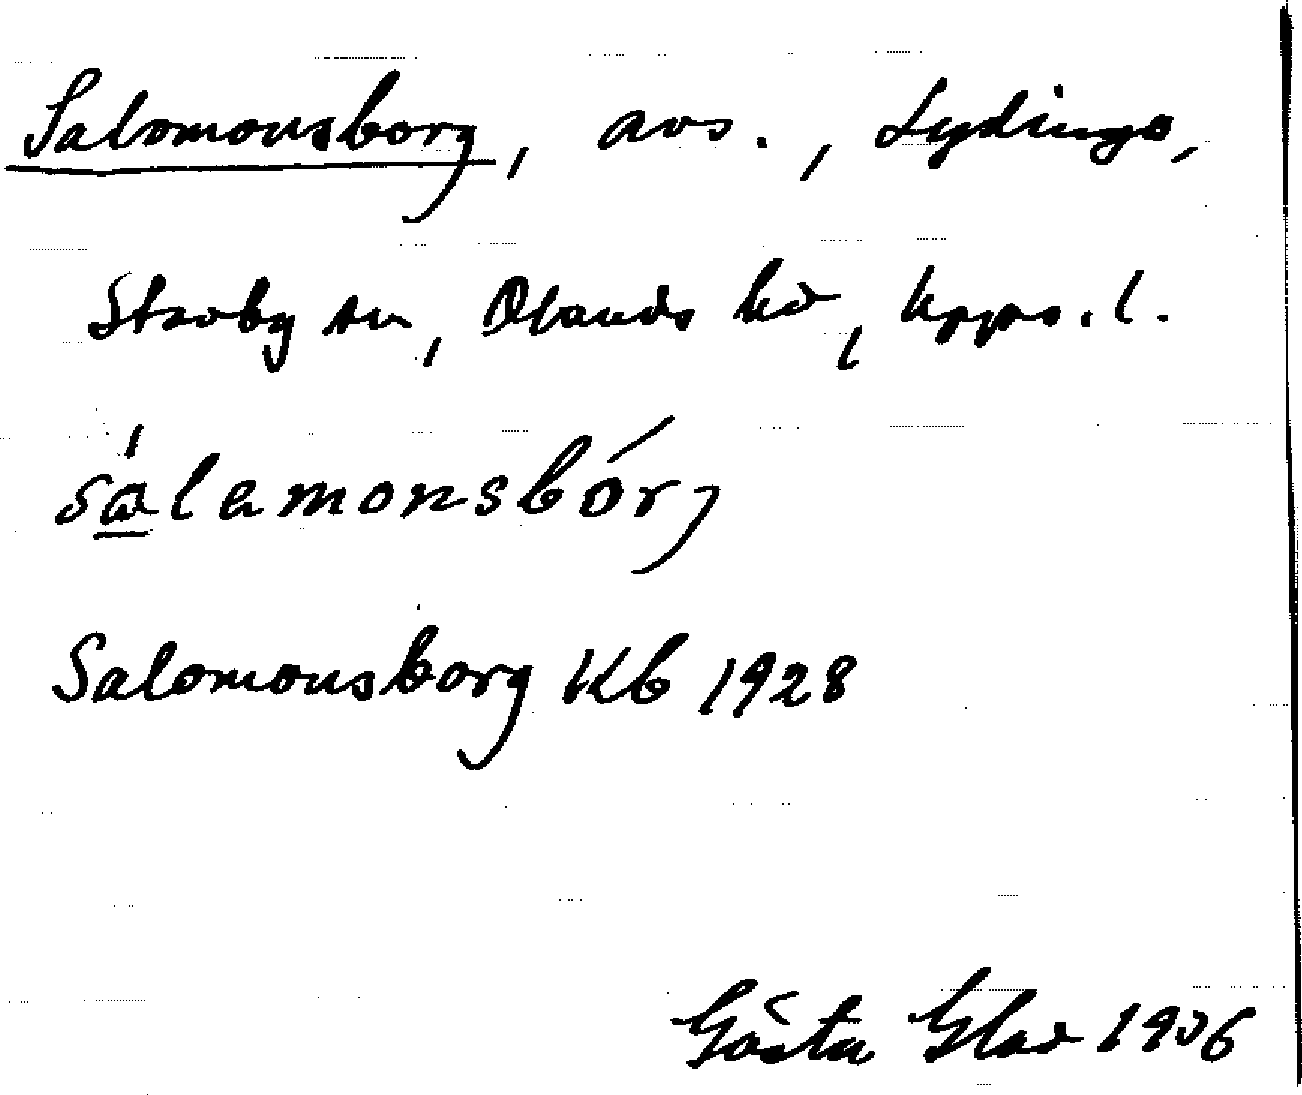 Salomonsborg, avs., Lydinge,
Stavby sn, Olands hd, Upps. l.
sálamonsbórj
Salomonsborg Kb 1928
Gösta Glad 1936